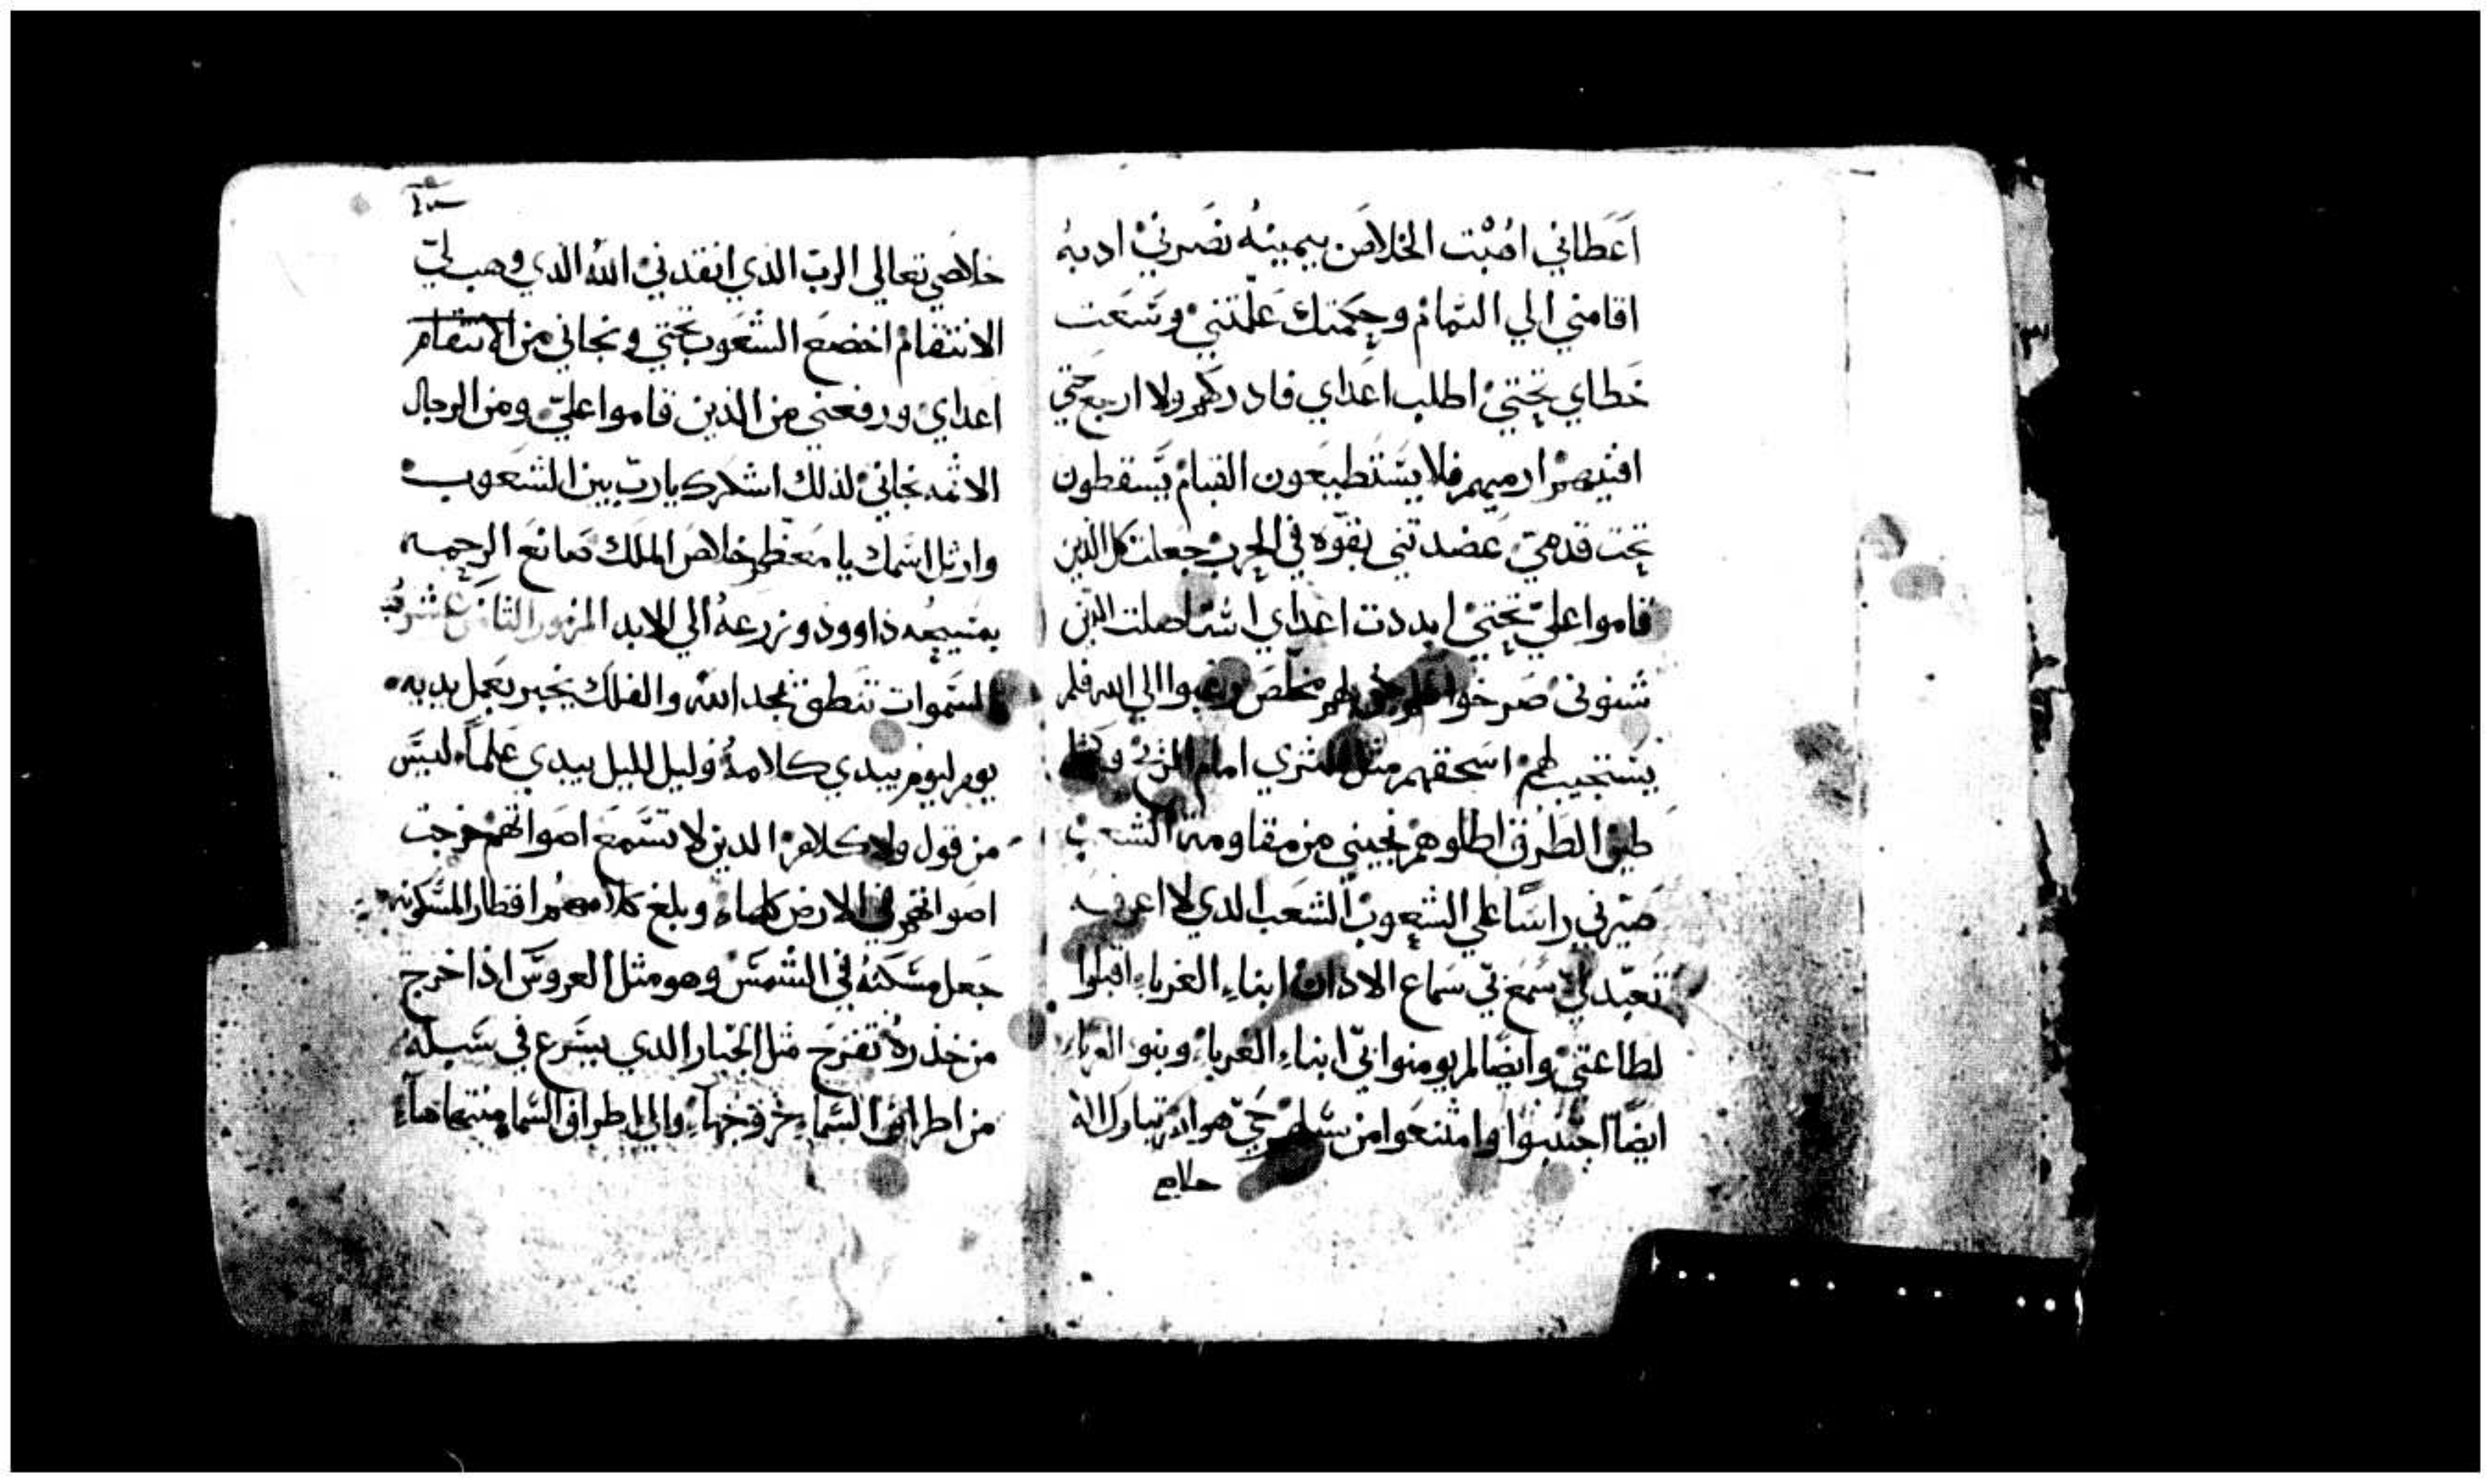 اعطاني اصبت الخلاص يمينه نصرني ادبه
اقامني الي التمام وحكمتك علمتني وسعت
خطاي تحتي اطلب اعداي فادركهم ولا ارجع حتي
افنيهم ارميهم فلا يستطيعون القيام يسقطون
تحت قدمي عضدتني بقوه في الحرب جعلت كل الذين
قاموا علي تحتي ابددت اعداي استاصلت الذين
شنوني صرخوا مخلص الي الله فلم
يستجيب لهم اسحقهم مثل الثري امام الريح
طين الطرق اطاوهم نجيني من مقاومة الشعب
صيرني راسا علي الشعوب الشعب الدي لا اعرفه
تعبد لي سمع بي سماع الاذان ابناء الغرباء اقبلوا
لطاعتي وايضا لم يومنوا بي ابناء الغرباء وبنو الغرباء
ايضا اجتنبوا وامتنعوا من سبلهم حي هو الله تبارك الله
خلاصي تعالي الرب الذي انقدني الله الذي وهب لي
الانتقام اخضع الشعوب تحتي ونجاني من الانتقام
اعداي ورفعني من الذين قاموا علي ومن الرجال
الاثمه نجاني لذلك اشكرك يا رب بين الشعوب
وارتل اسمك يا معظم خلاص الملك صانع الرحمه
بمسيحه داوود وزرعه الي الابد المزمور الثامن عشر
السموات تنطق بمجد الله والفلك يخبر بعمل يديه
يوم ليوم يبدي كلامه وليل لليل يبدي علما ليس
من قول ولا كلام الدين لا تسمع اصواتهم خرجت
اصواتهم في الارض كلها وبلغ كلامهم اقطار المسكونه
جعل مسكنه في الشمس وهو مثل العروس اذا خرج
من خذره تفرح مثل الجبار الدي يسرع في سبله
من اطراف السماء خروجها والي اطراف السما منتهاها